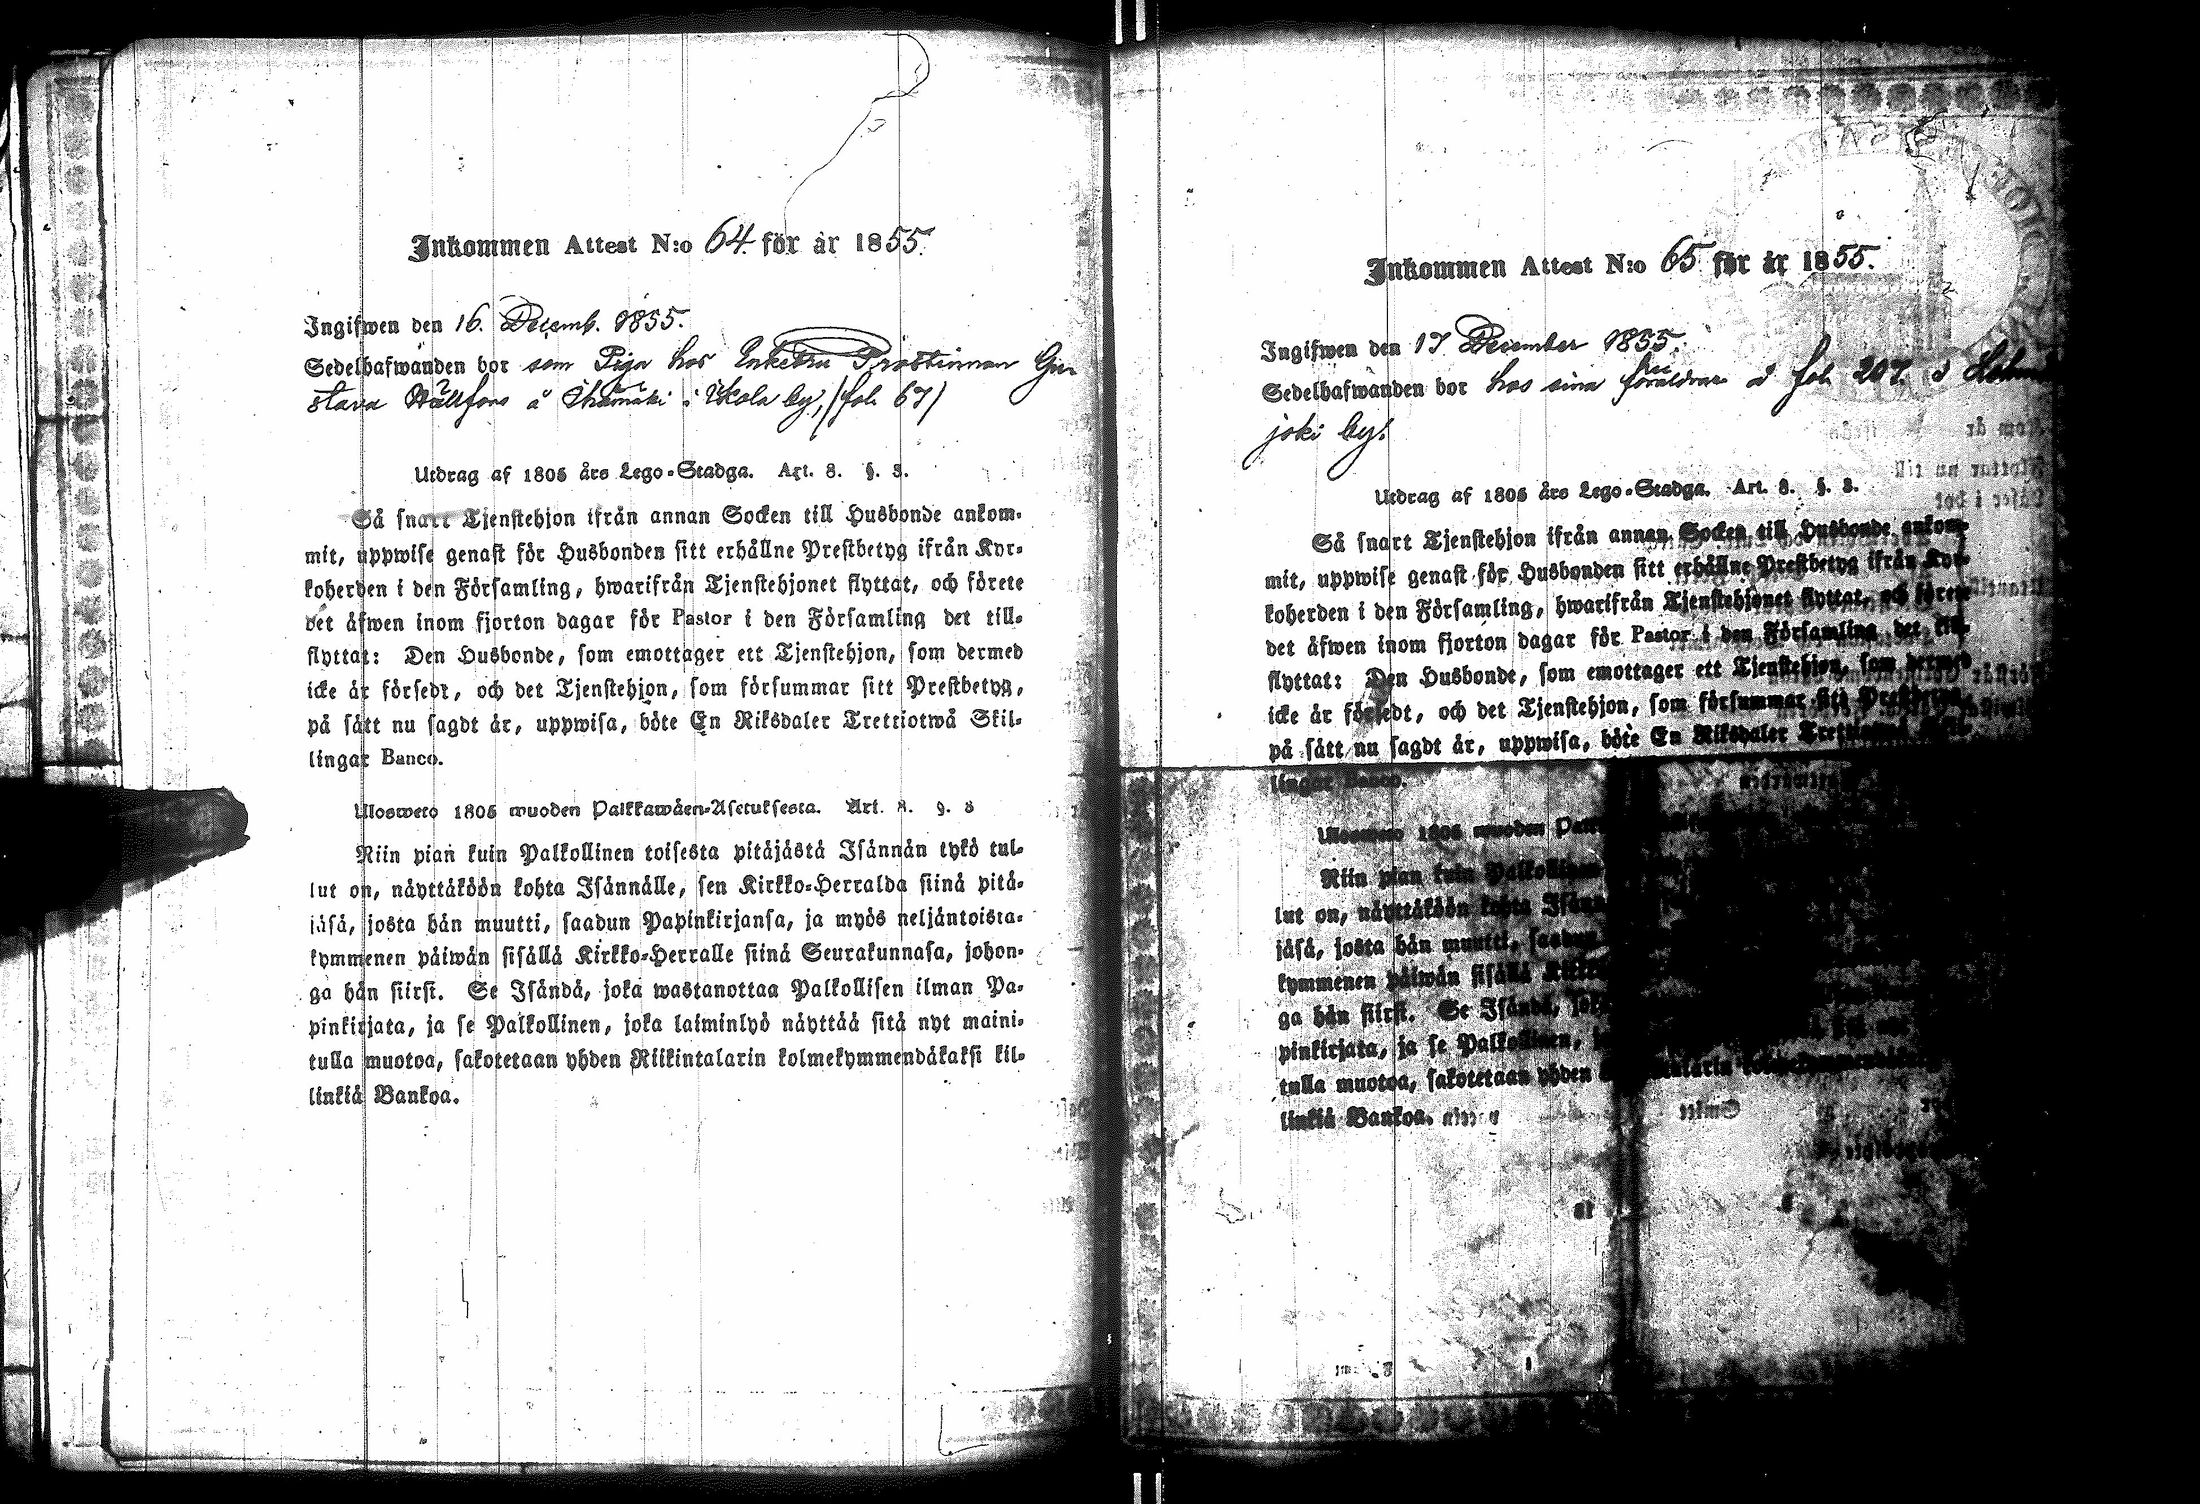 Inkommen Attest N:o 64. för år 1855.
Ingifwen den 16. Decemb. 1855.
Sedelhafwanden bor som Piga hos Enkefru Prostinnan Gu-
stava Wällfors å i Ukola by, (fol. 67)
Utdrag af 1805 års Lego-Stadga. Art. 8. §. 3.
Så snart Tjenstehjon ifrån annan Socken till Husbonde ankom-
mit, uppwise genast för Husbonden sitt erhållne Prestbetyg ifrån Kyr-
koherden i den Församling, hwarifrån Tjenstehjonet flyttat, och förete
det äfwen inom fjorton dagar för Pastor i den Församling det till-
flyttat: Den Husbonde, som emottager ett Tjenstehjon, som dermed
icke är försedt, och det Tjenstehjon, som försummar sitt Prestbetyg,
på sätt nu sagdt är, uppwisa, böte En Riksdaler Trettiotwå Skil-
lingar Banco.
Ulosweto 1805 wuoden Palkkawäen-Asetuksesta. Art. 8. §. 3
Niin pian kuin Palkollinen toisesta pitäjästä Isännän tykö tul-
lut on, näyttäköön kohta Isännälle, sen Kirkko-Herralda siinä pitä-
jäsä, josta hän muutti, saadun Papinkirjansa, ja myös neljäntoista-
kymmenen päiwän sisällä Kirkko-Herralle siinä Seurakunnasa, johon-
ga hän siirsi. Se Isändä, joka wastanottaa Palkollisen ilman Pa-
pinkirjata, ja se Palkollinen, joka laiminlyö näyttää sitä nyt maini-
tulla muotoa, sakotetaan yhden Riikintalarin kolmekymmendäkaksi kil-
linkiä Bankoa.
Inkommen Attest N:o 65 för år 1855.
Ingifwen den 17 December 1855.
Sedelhafwanden bor hos sina föräldrar å fol. 207. i
joki by.
Utdrag af 1805 års Lego-Stadga. Art. 8. §. 3.
Så snart Tjenstehjon ifrån annan Socken till Husbonde ankom-
mit, uppwise genast för Husbonden sitt erhållne Prestbetyg ifrån Kyr-
koherden i den Församling, hwarifrån Tjenstehjonet flyttat, och förete
det äfwen inom fjorton dagar för Pastor i den Församling det till-
flyttat: Den Husbonde, som emottager ett Tjenstehjon, som dermed
icke är försedt, och det Tjenstehjon, som försummar sitt Prestbetyg,
på sätt nu sagdt är, uppwisa, böte En Riksdaler
lingar Banco.
Ulosweto 1805 wuoden
Niin pian kuin Palkollinen
lut on, näyttäköön kohta
jäsä, josta hän muutti, saadun
kymmenen päiwän sisällä
ga hän siirsi. Se Isändä,
pinkirjata, ja se Palkollinen,
tulla muotoa, sakotetaan yhden
linkiä Bankoa.